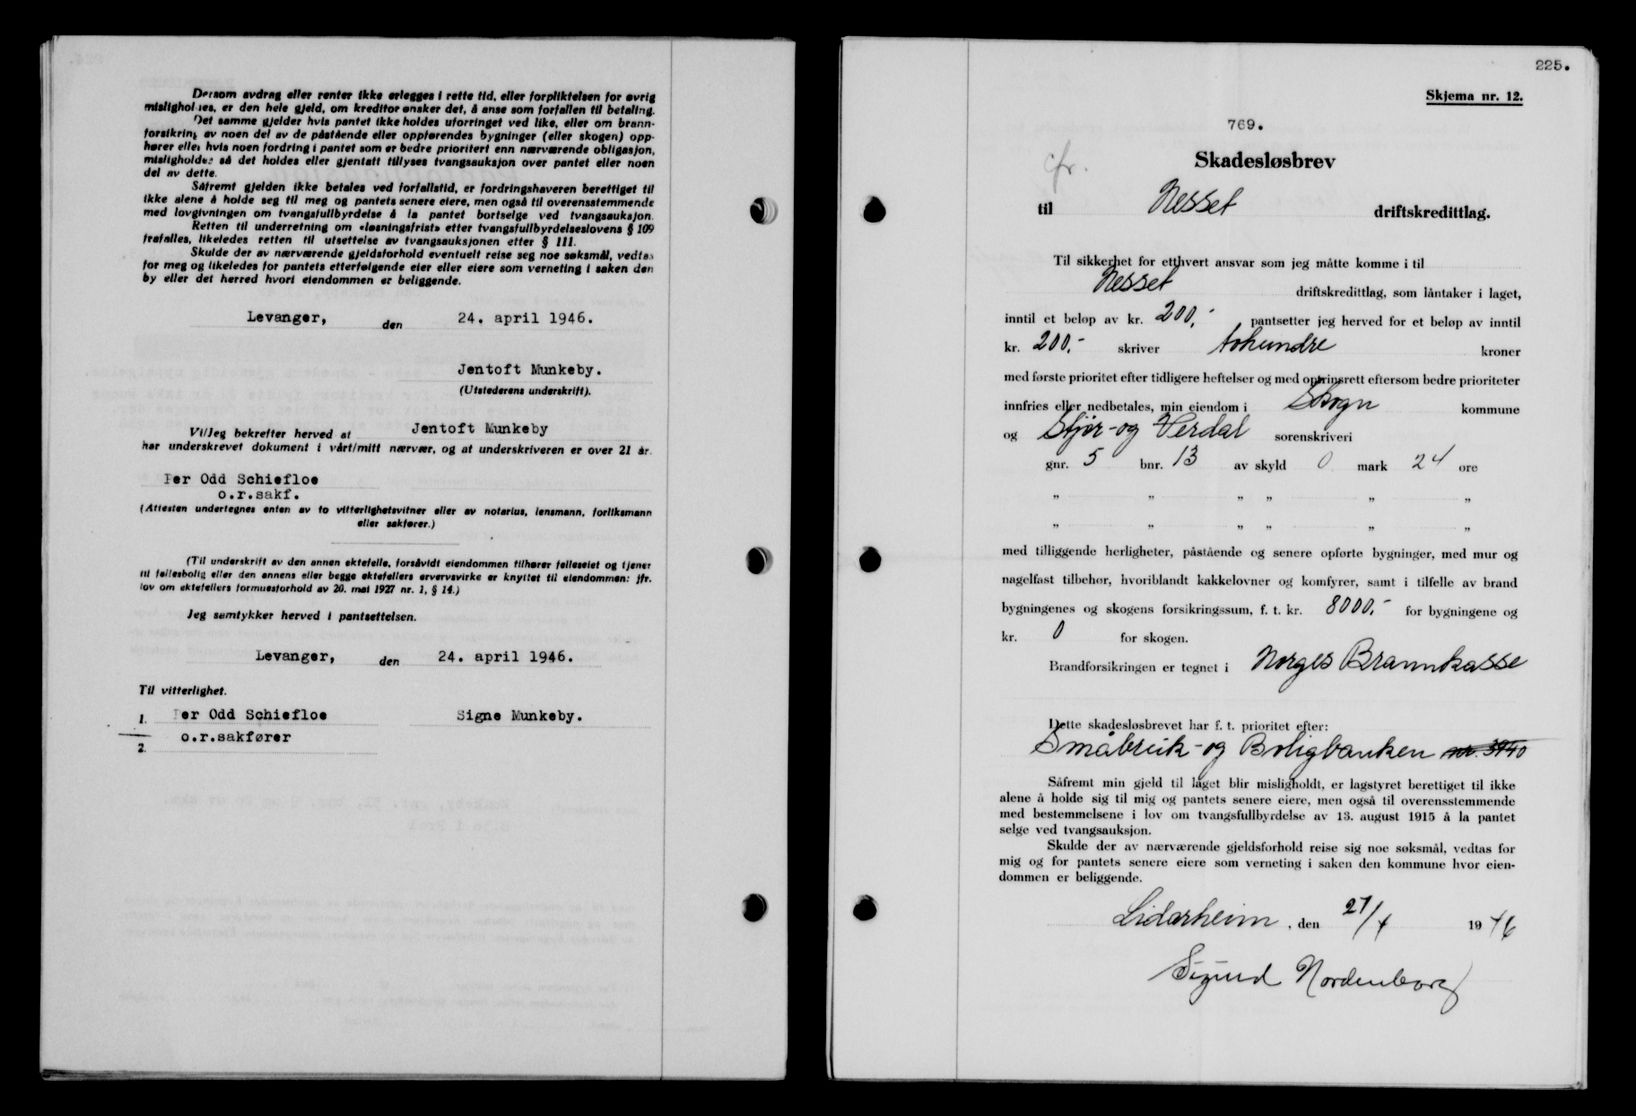 Dersom avdrag eller renter ikke erlegges i rette tid, eller forpliktelsen for øvrig
misligholdes, er den hele gjeld, om kreditor ønsker det, å anse som forfallen til betaling.
Det samme gjelder hvis pantet ikke holdes uforringet ved like, eller om brann-
forsikring av noen del av de påstående eller oppførendes bygninger (eller skogen) opp-
hører eller hvis noen fordring i pantet som er bedre prioritert enn nærværende obligasjon,
misligholdes så det holdes eller gjentatt tillyses tvangsauksjon over pantet eller noen
del av dette.
Såfremt gjelden ikke betales ved forfallstid, er fordringshaveren berettiget til
ikke alene å holde seg til meg og pantets senere eiere, men også til overensstemmende
med lovgivningen om tvangsfullbyrdelse å la pantet bortselge ved tvangsauksjon.
Retten til underretning om «løsningsfrist» etter tvangsfullbyrdelseslovens § 109
frafalles, likeledes retten til utsettelse av tvangsauksjonen etter § 111.
Skulde der av nærværende gjeldsforhold eventuelt reise seg noe søksmål, vedtas
for meg og likeledes for pantets etterfølgende eier eller eiere som verneting i saken den
by eller det herred hvori eiendommen er beliggende.
Levanger, den 24. april 1946.
Jentoft Munkeby.
(Utstederens underskrift).
Vi/Jeg bekrefter herved at Jentoft Munkeby
har underskrevet dokument i vårt/mitt nærvær, og at underskriveren er over 21 år.
Per Odd Schiefloe
o.r.sakf.
(Attesten undertegnes enten av to vitterlighetsvitner eller av notarius, lensmann, forliksmann
eller sakfører.)
(Til underskrift av den annen ektefelle, forsåvidt eiendommen tilhører felleseiet og tjener
til fellesbolig eller den annens eller begge ektefellers ervervsvirke er knyttet til eiendommen: jfr.
lov om ektefellers formuesforhold av 20. mai 1927 nr. 1, § 14.)
Jeg samtykker herved i pantsettelsen.
Levanger, den 24. april 1946.
Til vitterlighet.
1. Per Odd Schiefloe Signe Munkeby.
o.r.sakfører
2.
225.
Skjema nr. 12.
769.
cfr.
Skadesløsbrev
til Nesset driftskredittlag.
Til sikkerhet for etthvert ansvar som jeg måtte komme i til
Nesset driftskredittlag, som låntaker i laget,
inntil et beløp av kr. 200,- pantsetter jeg herved for et beløp av inntil
kr. 200,- skriver tohundre kroner
med første prioritet efter tidligere heftelser og med opprinsrett eftersom bedre prioriteter
innfries eller nedbetales, min eiendom i Skogn kommune
og Stjør- og Verdal sorenskriveri
gnr. 5 bnr. 13 av skyld 0 mark 24 øre
" " " " " "
" " " " " "
med tilliggende herligheter, påstående og senere opførte bygninger, med mur og
nagelfast tilbehør, hvoriblandt kakkelovner og komfyrer, samt i tilfelle av brand
bygningenes og skogens forsikringssum, f. t. kr. 8000,- for bygningene og
kr. 0 for skogen.
Brandforsikringen er tegnet i Norges Brannkasse
Dette skadesløsbrevet har f. t. prioritet efter:
Småbruk- og Boligbanken nr. 3940
Såfremt min gjeld til laget blir misligholdt, er lagstyret berettiget til ikke
alene å holde sig til mig og pantets senere eiere, men også til overensstemmende
med bestemmelsene i lov om tvangsfullbyrdelse av 13. august 1915 å la pantet
selge ved tvangsauksjon.
Skulde der av nærværende gjeldsforhold reise sig noe søksmål, vedtas for
mig og for pantets senere eiere som verneting i saken den kommune hvor eien-
dommen er beliggende.
Lidarheim, den 27/4 1946
Sigurd Nordenborg